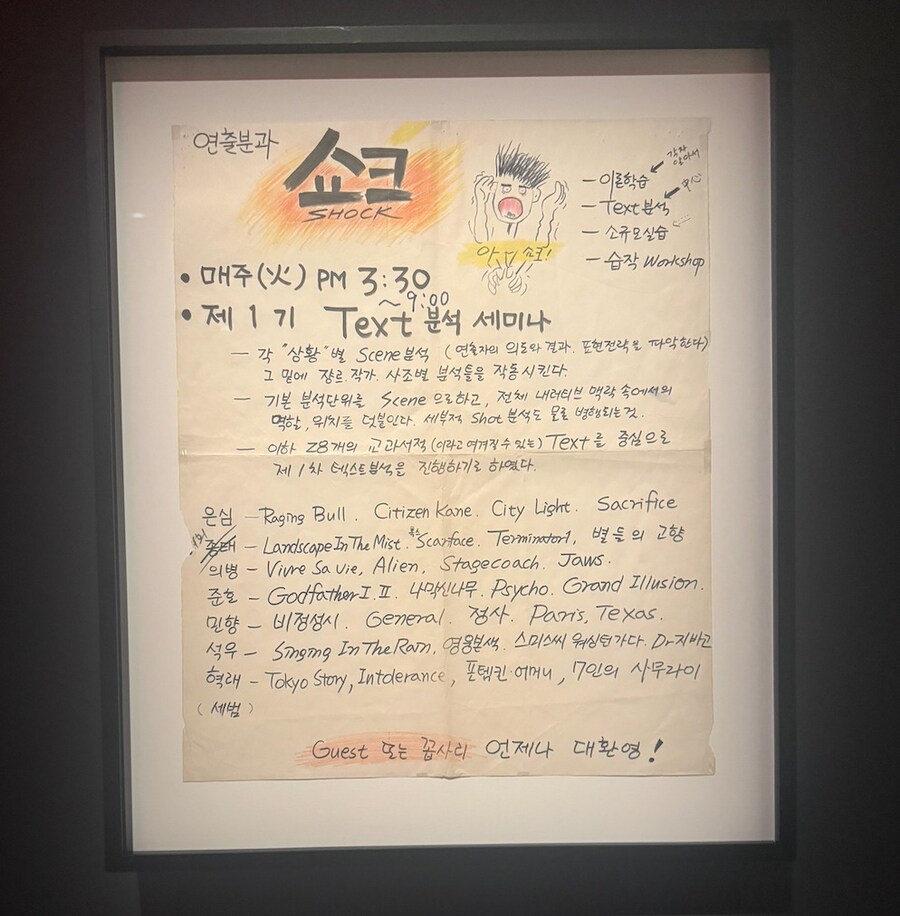 연출분과
쇼크
SHOCK
앗! 쇼크!
각자 알아서
- 이론학습
중心
- Text 분석
- 소규모실습
- 습작 Workshop
• 매주(火) PM 3:30
~9:00
• 제 1 기 Text 분석 세미나
- 각 "상황"별 Scene분석 (연출자의 의도와 결과. 표현전략을 파악한다)
그 밑에 쟝르.작가. 사조별 분석틀을 작동시킨다.
- 기본 분석단위를 Scene 으로하고, 전체 내러티브 맥락 속에서의
역할, 위치를 덧붙인다. 세부적 Shot 분석도 물론 병행되는것.
- 이하 28개의 교과서적 (이라고 여겨질 수 있는) Text 를 중심으로
제 1 차 텍스트분석을 진행하기로 하였다.
은심 - Raging Bull. Citizen Kane. City Light. Sacrifice
- Landscape In The Mist. Scarface. Terminator1, 별들의 고향
의병 - Vivre Sa Vie, Alien, Stagecoach. Jaws.
준호 - Godfather I. II. 나막신나무. Psycho. Grand Illusion.
민향 - 비정성시. General. 정사. Paris, Texas.
석우 - Singing In The Rain. 영웅본색. 스미스씨 워싱턴가다. Dr지바고
혁래 - Tokyo Story, Intolerance, 포템킨. 어머니, 7인의 사무라이
(세범)
Guest 또는 꼽사리 언제나 대환영!